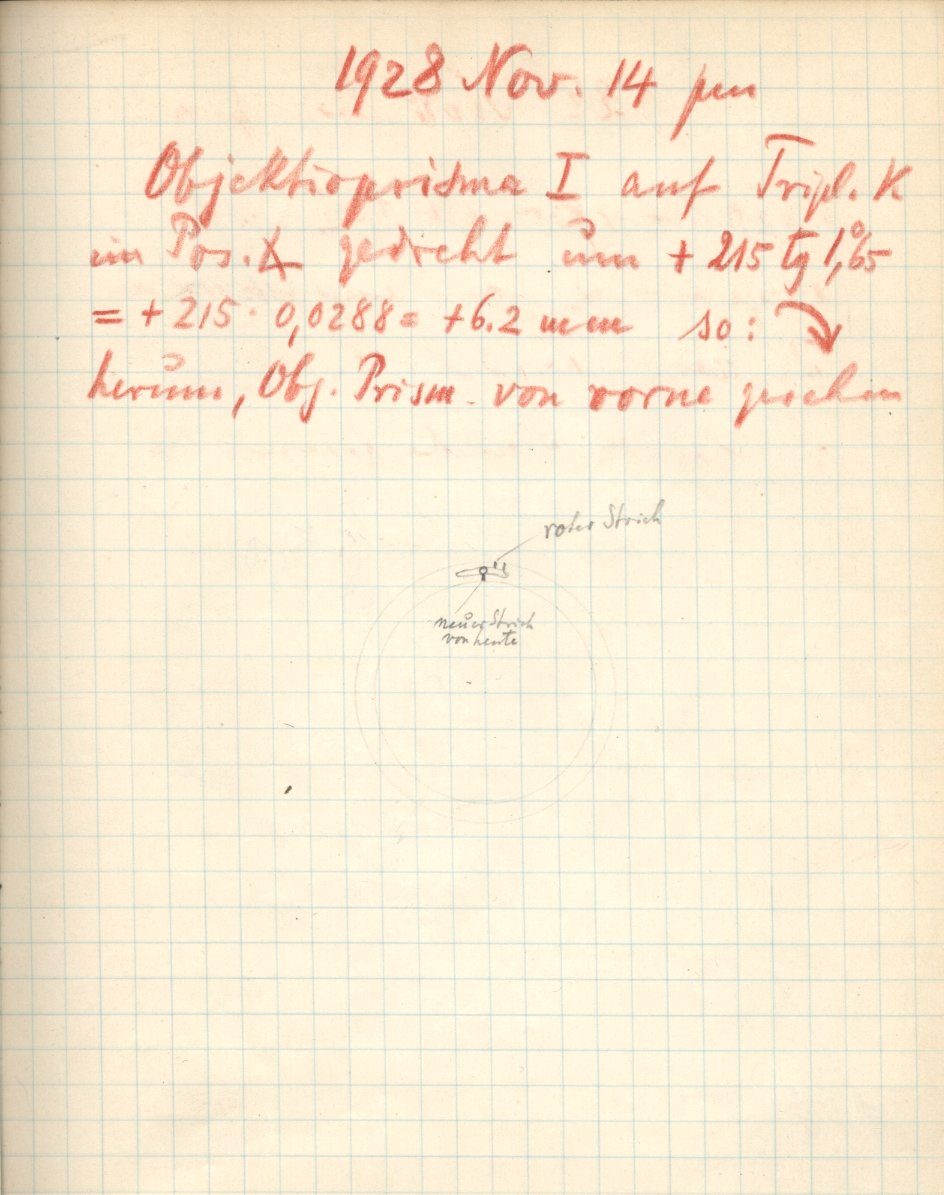 1928 Nov. 14 pm
Objektivprisma I auf Tripl. K
im Pos. ∡ gedreht um + 215 tg 1°,65
= + 215 · 0,0288 = +6.2 mm so:
herum, Obj. Prism. von vorne gesehen
roter Strich
neuer Strich
von heute